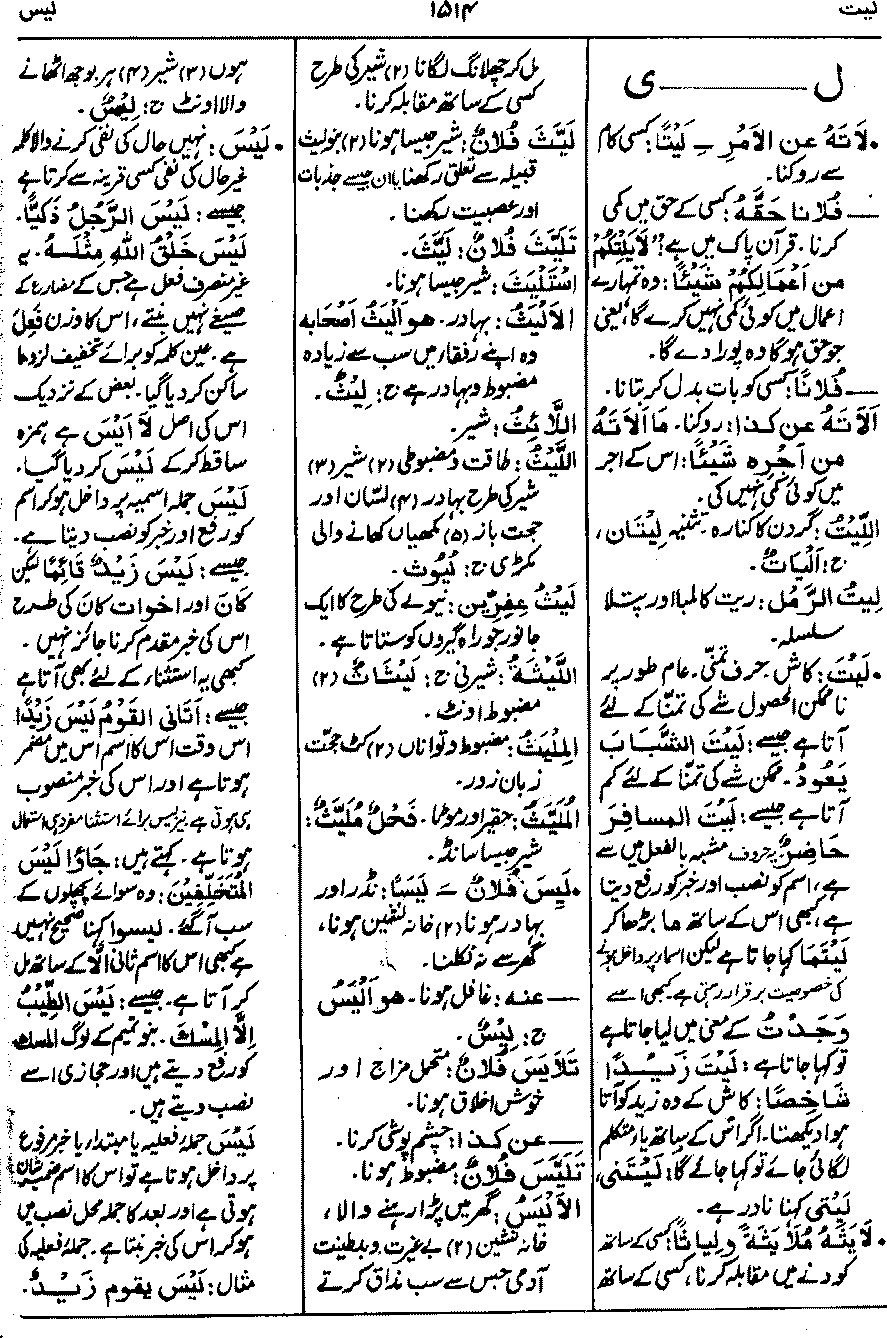 لیت
۱۵۱۴
لیس
ل ـــــ ی
• لَاتَهُ عن الأمْرِ ــِـ لَيْتًا: کسی کام
سے روکنا۔
ــــ فُلانا حَقَّهُ: کسی کے حق میں کمی
کرنا۔ قرآن پاک میں ہے: "لَايَلِتْكُمْ
من أعْمَالِكُمْ شَيْئًا: وہ تمہارے
اعمال میں کوئی کمی نہیں کرے گا، یعنی
جو حق ہوگا وہ پورا دے گا۔
ــــ فُلَانًا: کسی کو بات بدل کر بتانا۔
اَلَاتَهُ عن كذا: روکنا۔ مَا اَلَاتَهُ
من أجْرِه شَيْئًا: اس کے اجر
میں کوئی کمی نہیں کی۔
اللِّيْتُ: گردن کا کنارہ۔ تثنیہ لِيْتَان،
ج: اَلْيَاتٌ۔
لِيتُ الرَّمْل: ریت کا لمبا اور پتلا
سلسلہ۔
• لَيْتَ: کاش۔ حرف تمنّی۔ عام طور پر
ناممکن الحصول شے کی تمنّا کے لئے
آتا ہے جیسے: لَيْتَ الشَّبَابَ
يَعُودُ۔ ممکن شے کی تمنّا کے لئے کم
آتا ہے جیسے: لَيْتَ المسافِرَ
حَاضِرٌ حروف مشبہ بالفعل میں سے
ہے، اسم کو نصب اور خبر کو رفع دیتا
ہے، کبھی اس کے ساتھ ما بڑھا کر
لَيْتَمَا کہا جاتا ہے لیکن اسماء پر داخل ہونے
کی خصوصیت برقرار رہتی ہے۔ کبھی اسے
وَجَدْتُ کے معنی میں لیا جاتا ہے
تو کہا جاتا ہے: لَيْتَ زَيْدًا
شَاخِصًا: کاش کے وہ زید کو آتا
ہوا دیکھتا۔ اگر اس کے ساتھ یاء متکلم
لگائی جائے تو کہا جائے گا: لَيْتَنِى،
لَيْتِى کہنا نادر ہے۔
• لَايَثَهُ مُلَايَثَةً و لِيَاثًا: کسی کے ساتھ
کودنے میں مقابلہ کرنا، کسی کے ساتھ
مل کر چھلانگ لگانا (۲) شیر کی طرح
کسی کے ساتھ مقابلہ کرنا۔
لَيَّثَ فُلانٌ: شیر جیسا ہونا (۲) بنولیث
قبیلہ سے تعلق رکھنا یا ان جیسے جذبات
اور عصبیت رکھنا۔
تَلَيَّثَ فُلَانٌ: لَيَّثَ۔
اسْتَلْيَثَ: شیر جیسا ہونا۔
الأَلْيَثُ: بہادر۔ هو اَلْيَثُ اَصْحَابِه
وہ اپنے رفقاء میں سب سے زیادہ
مضبوط و بہادر ہے ج: لِيْثٌ۔
اللَّائِثُ: شیر۔
اللَّيْثُ: طاقت و مضبوطی (۲) شیر (۳)
شیر کی طرح بہادر (۴) لسّان اور
حجت باز (۵) مکھیاں کھانے والی
مکڑی ج: لُيُوث۔
لَيْثُ عِفِرِّين: نیولے کی طرح کا ایک
جانور جو راہ گیروں کو ستاتا ہے۔
اللَّيْثَةُ: شیرنی ج: لَيْثَاتٌ (۲)
مضبوط اونٹ۔
المِلْيَثُ: مضبوط و تواناں (۲) کٹ حجّت
زبان زور۔
المُلَيَّثُ: حقیر اور موٹا۔ فَحْلٌ مُلَيَّثٌ:
شیر جیسا سانڈ۔
• لَيِسَ فُلَانٌ ــَـ لَيَسًا: نڈر اور
بہادر ہونا (۲) خانہ نشین ہونا،
گھر سے نہ نکلنا۔
ــــ عنه: غافل ہونا۔ هو اَلْيَسُ
ج: لِيْسٌ۔
تَلَايَسَ فُلَانٌ: متحمل مزاج اور
خوش اخلاق ہونا۔
ــــ عن كذا: چشم پوشی کرنا۔
تَلَيَّسَ فُلَانٌ: مضبوط ہونا۔
الأَلْيَسُ: گھر میں پڑا رہنے والا،
خانہ نشین (۲) بے غیرت و بد طینت
آدمی جس سے سب مذاق کرتے
ہوں (۳) شیر (۴) ہر بوجھ اٹھانے
والا اونٹ ج: لِيْسٌ۔
• لَيْسَ: نہیں حال کی نفی کرنے والا کلمہ
غیر حال کی نفی کسی قرینہ سے کرتا ہے
جیسے: لَيْسَ الرَّجُلُ ذَكِيًّا۔
لَيْسَ خَلْقُ اللهِ مِثْلَهُ۔ یہ
غیر منصرف فعل ہے جس کے مضارع کے
صیغے نہیں بنتے، اس کا وزن فَعِلَ
ہے۔ عین کلمہ کو برائے تخفیف لزوماً
ساکن کر دیا گیا۔ بعض کے نزدیک
اس کی اصل لَا اَيْسَ ہے ہمزہ
ساقط کر کے لَيْسَ کر دیا گیا۔
لَيْسَ جملہ اسمیہ پر داخل ہو کر اسم
کو رفع اور خبر کو نصب دیتا ہے۔
جیسے: لَيْسَ زَيْدٌ قَائِمًا لیکن
كَانَ اور اخوات كان کی طرح
اس کی خبر مقدم کرنا جائز نہیں۔
کبھی یہ استثناء کے لئے بھی آتا ہے
جیسے: أتَانِى القَوْمُ لَيْسَ زَيْدًا
اس وقت اس کا اسم اس میں مضمر
ہوتا ہے اور اس کی خبر منصوب
ہی ہوتی ہے نیز لیس برائے استثنا مفرد ہی استعمال
ہوتا ہے۔ کہتے ہیں: جَاؤُا لَيْسَ
المُتَخَلِّفِيْنَ: وہ سوائے پچھلوں کے
سب آگئے۔ لیسوا کہنا صحیح نہیں
ہے کبھی اس کا اسم ثانی اِلَّا کے ساتھ مل
کر آتا ہے۔ جیسے: لَيْسَ الطِّيْبُ
اِلَّا المِسْكَ۔ بنو تمیم کے لوگ المسك
کو رفع دیتے ہیں اور حجازی اسے
نصب دیتے ہیں۔
لَيْسَ جملہ فعلیہ یا مبتداء یا خبر مرفوع
پر داخل ہوتا ہے تو اس کا اسم ضمیر شان
ہوتی ہے اور بعد کا جملہ محل نصب میں
ہو کر اس کی خبر بنتا ہے۔ جملۂ فعلیہ کی
مثال: لَيْسَ يقوم زَيْدٌ۔